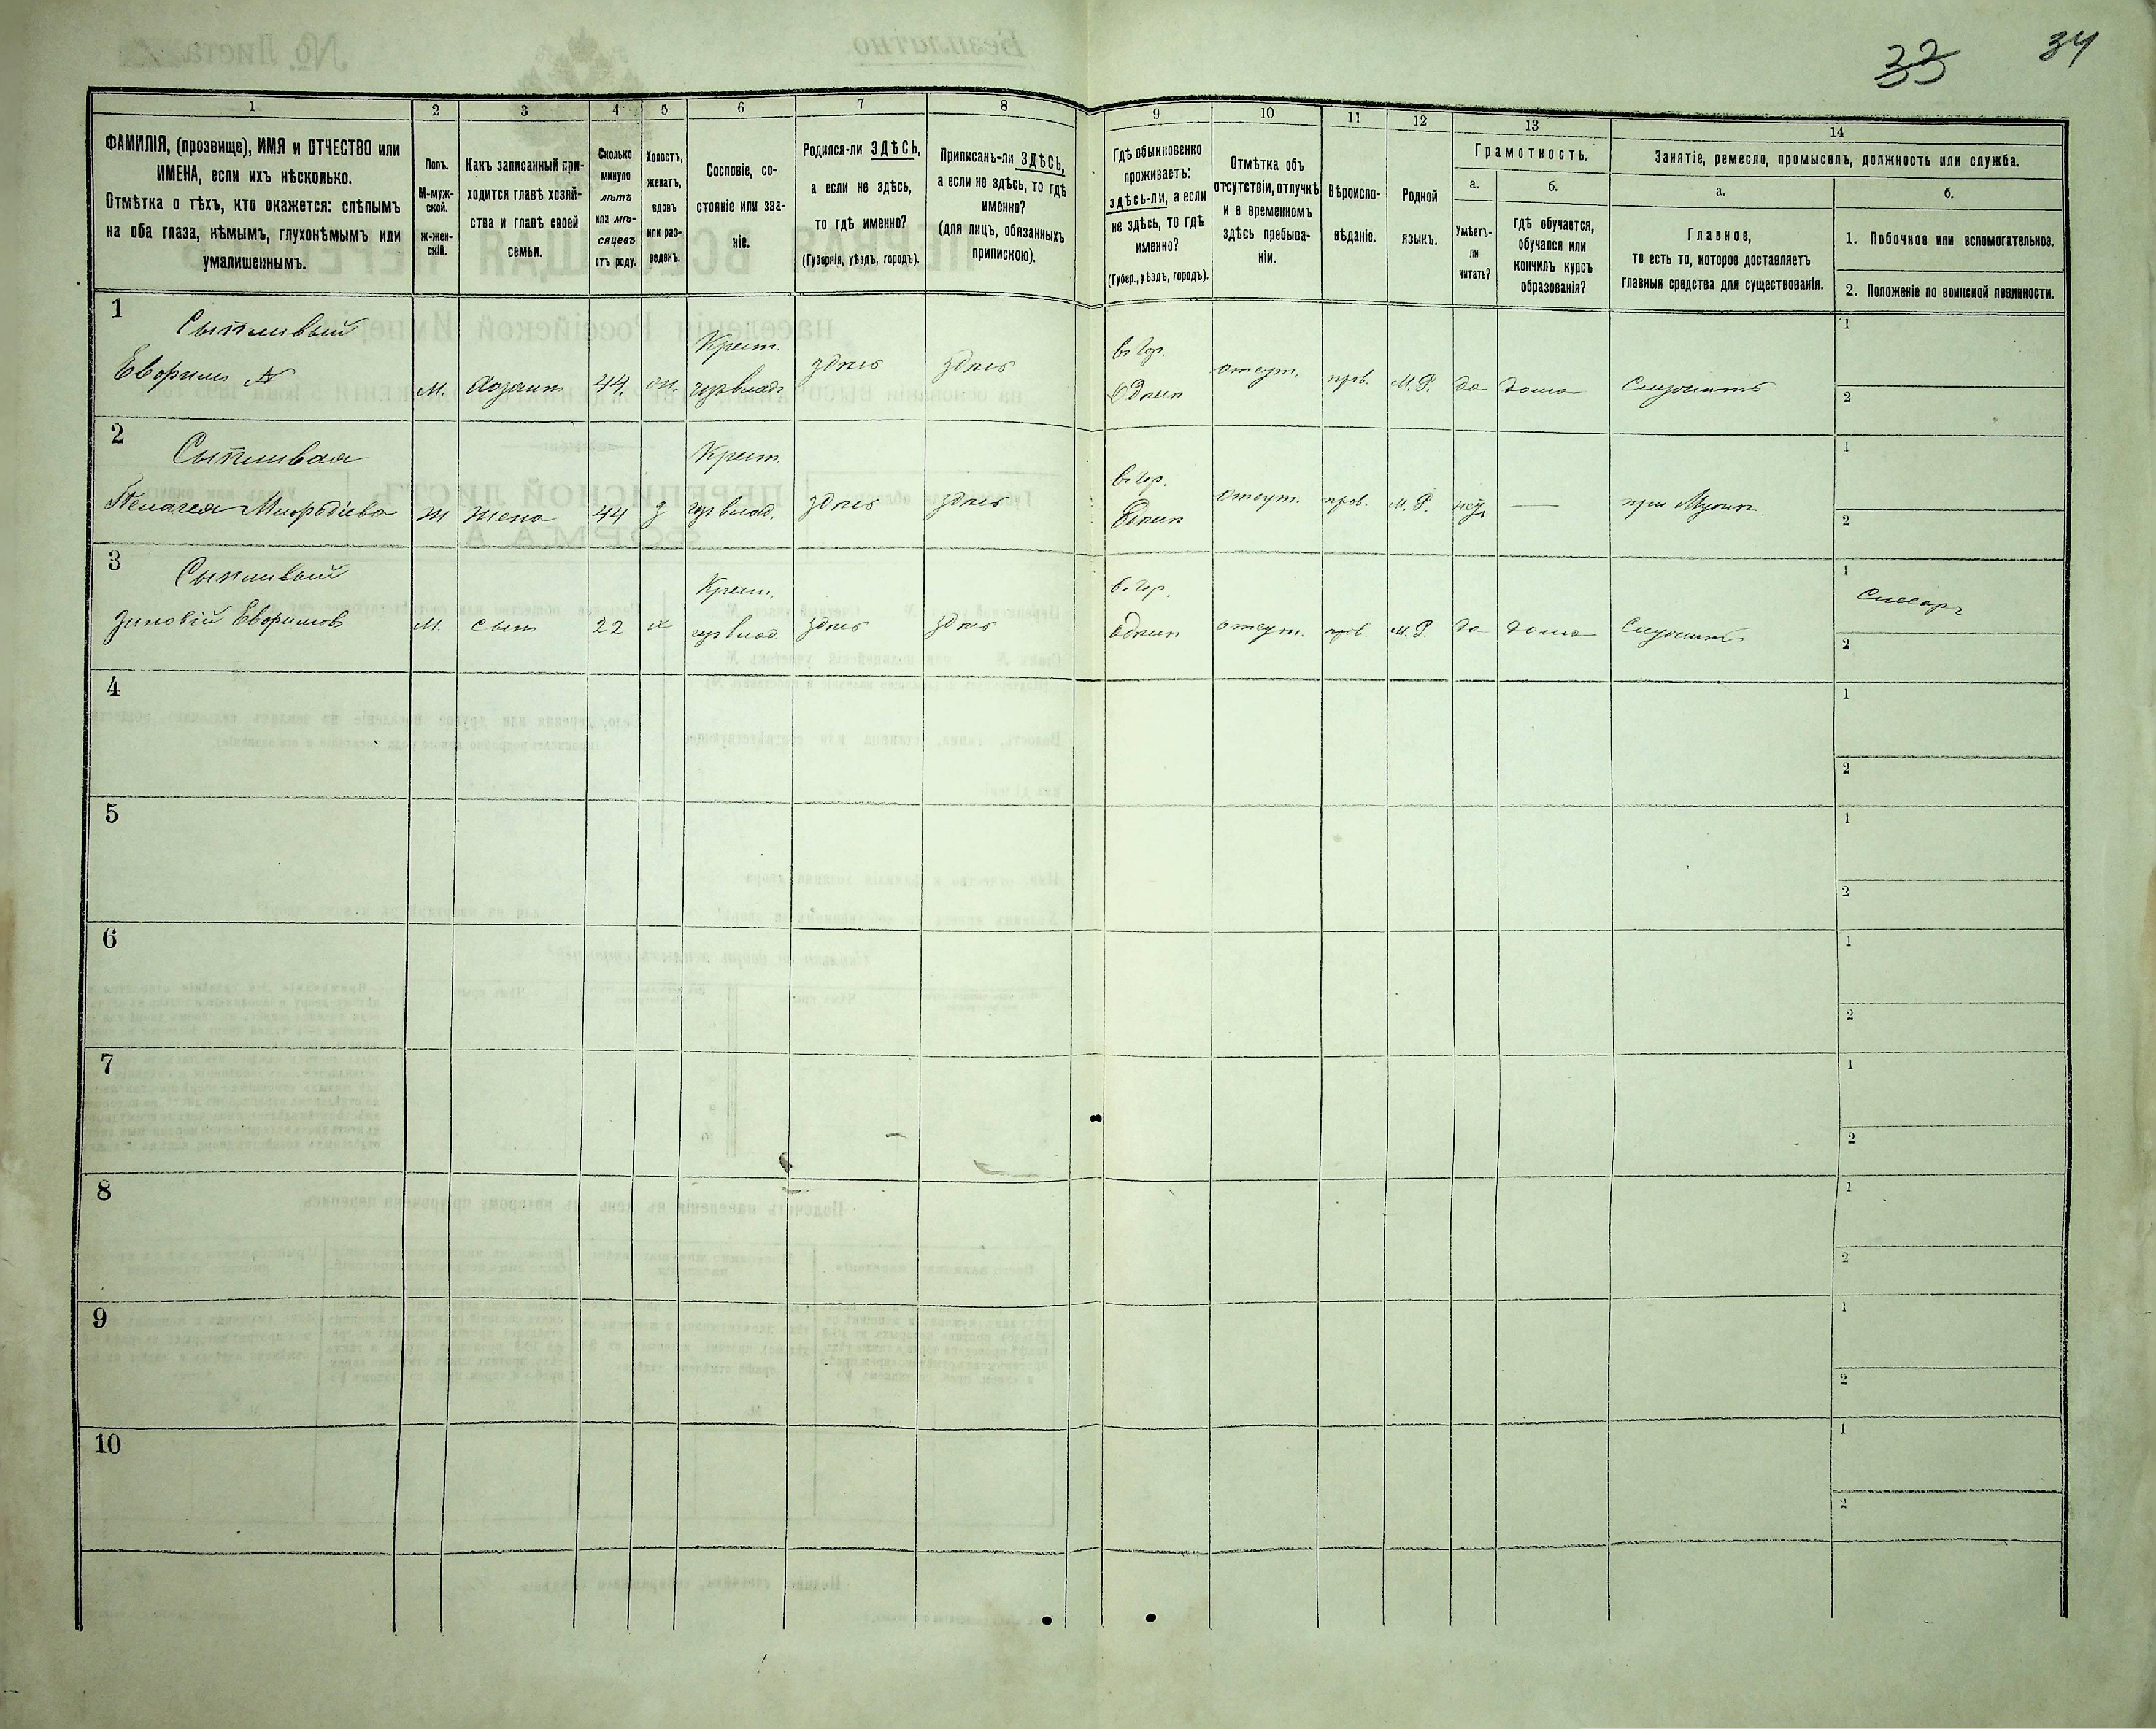 33 34
1 2 3 4 5 6 7 8 9 10 11 12 13 14
ФАМИЛІЯ, (прозвище), ИМЯ и ОТЧЕСТВО или
ИМЕНА, если ихъ нѣсколько.
Отмѣтка о тѣхъ, кто окажется: слѣпымъ
на оба глаза, нѣмымъ, глухонѣмымъ или
умалишеннымъ.
Полъ.
М-муж-
ской.
Ж-жен-
скій.
Какъ записанный при-
ходится главѣ хозяй-
ства и главѣ своей
семьи.
Сколько
минуло
лѣтъ
или мѣ-
сяцевъ
отъ роду.
Холостъ,
женатъ,
вдовъ
или раз-
веденъ.
Сословіе, со-
стояніе или зва-
ніе.
Родился-ли ЗДѢСЬ,
а если не здѣсь,
то гдѣ именно?
(Губернія, уѣздъ, городъ).
Приписанъ-ли ЗДѢСЬ,
а если не здѣсь, то гдѣ
именно?
(для лицъ, обязанныхъ
припискою).
Гдѣ обыкновенно
проживаетъ:
здѣсь-ли, а если
не здѣсь, то гдѣ
именно?
(Губер., уѣздъ, городъ).
Отмѣтка объ
отсутствіи, отлучкѣ
и о временномъ
здѣсь пребыва-
ніи.
Вѣроиспо-
вѣданіе.
Родной
языкъ.
Грамотность.
а.
Умѣетъ-
ли
читать?
б.
гдѣ обучается,
обучался или
кончилъ курсъ
образованія?
Занятіе, ремесло, промыселъ, должность или служба.
а.
Главное,
то есть то, которое доставляетъ
главныя средства для существованія.
б.
1. Побочное или вспомогательное.
2. Положеніе по воинской повинности.
1
Сыпливый
Крест.
въ гор.
М. 44. здѣсь здѣсь Одѣсѣ отсут. прав. М.Р. да дома Служитъ
1
2
2
Сыпливая
Крест.
въ гор.
Пелагея ж жена 44 з здѣсь здѣсь отсут. прав. М.Р. при Мужѣ.
1
2
3
Сыпливый
Крест.
въ гор.
Зиновій М. сынъ 22 х здѣсь здѣсь Одѣсѣ отсут. прав. М.Р. да дома Служитъ
1
Слесарь
2
4
1
2
5
1
2
6
1
2
7
1
2
8
1
2
9
1
2
10
1
2